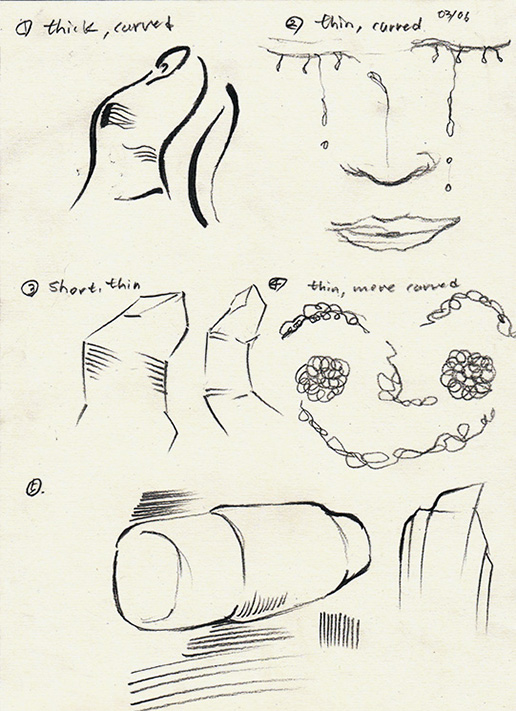 ① thick, curved
② thin, curved 03/06
③ short, thin
④ thin, more curved
⑤.